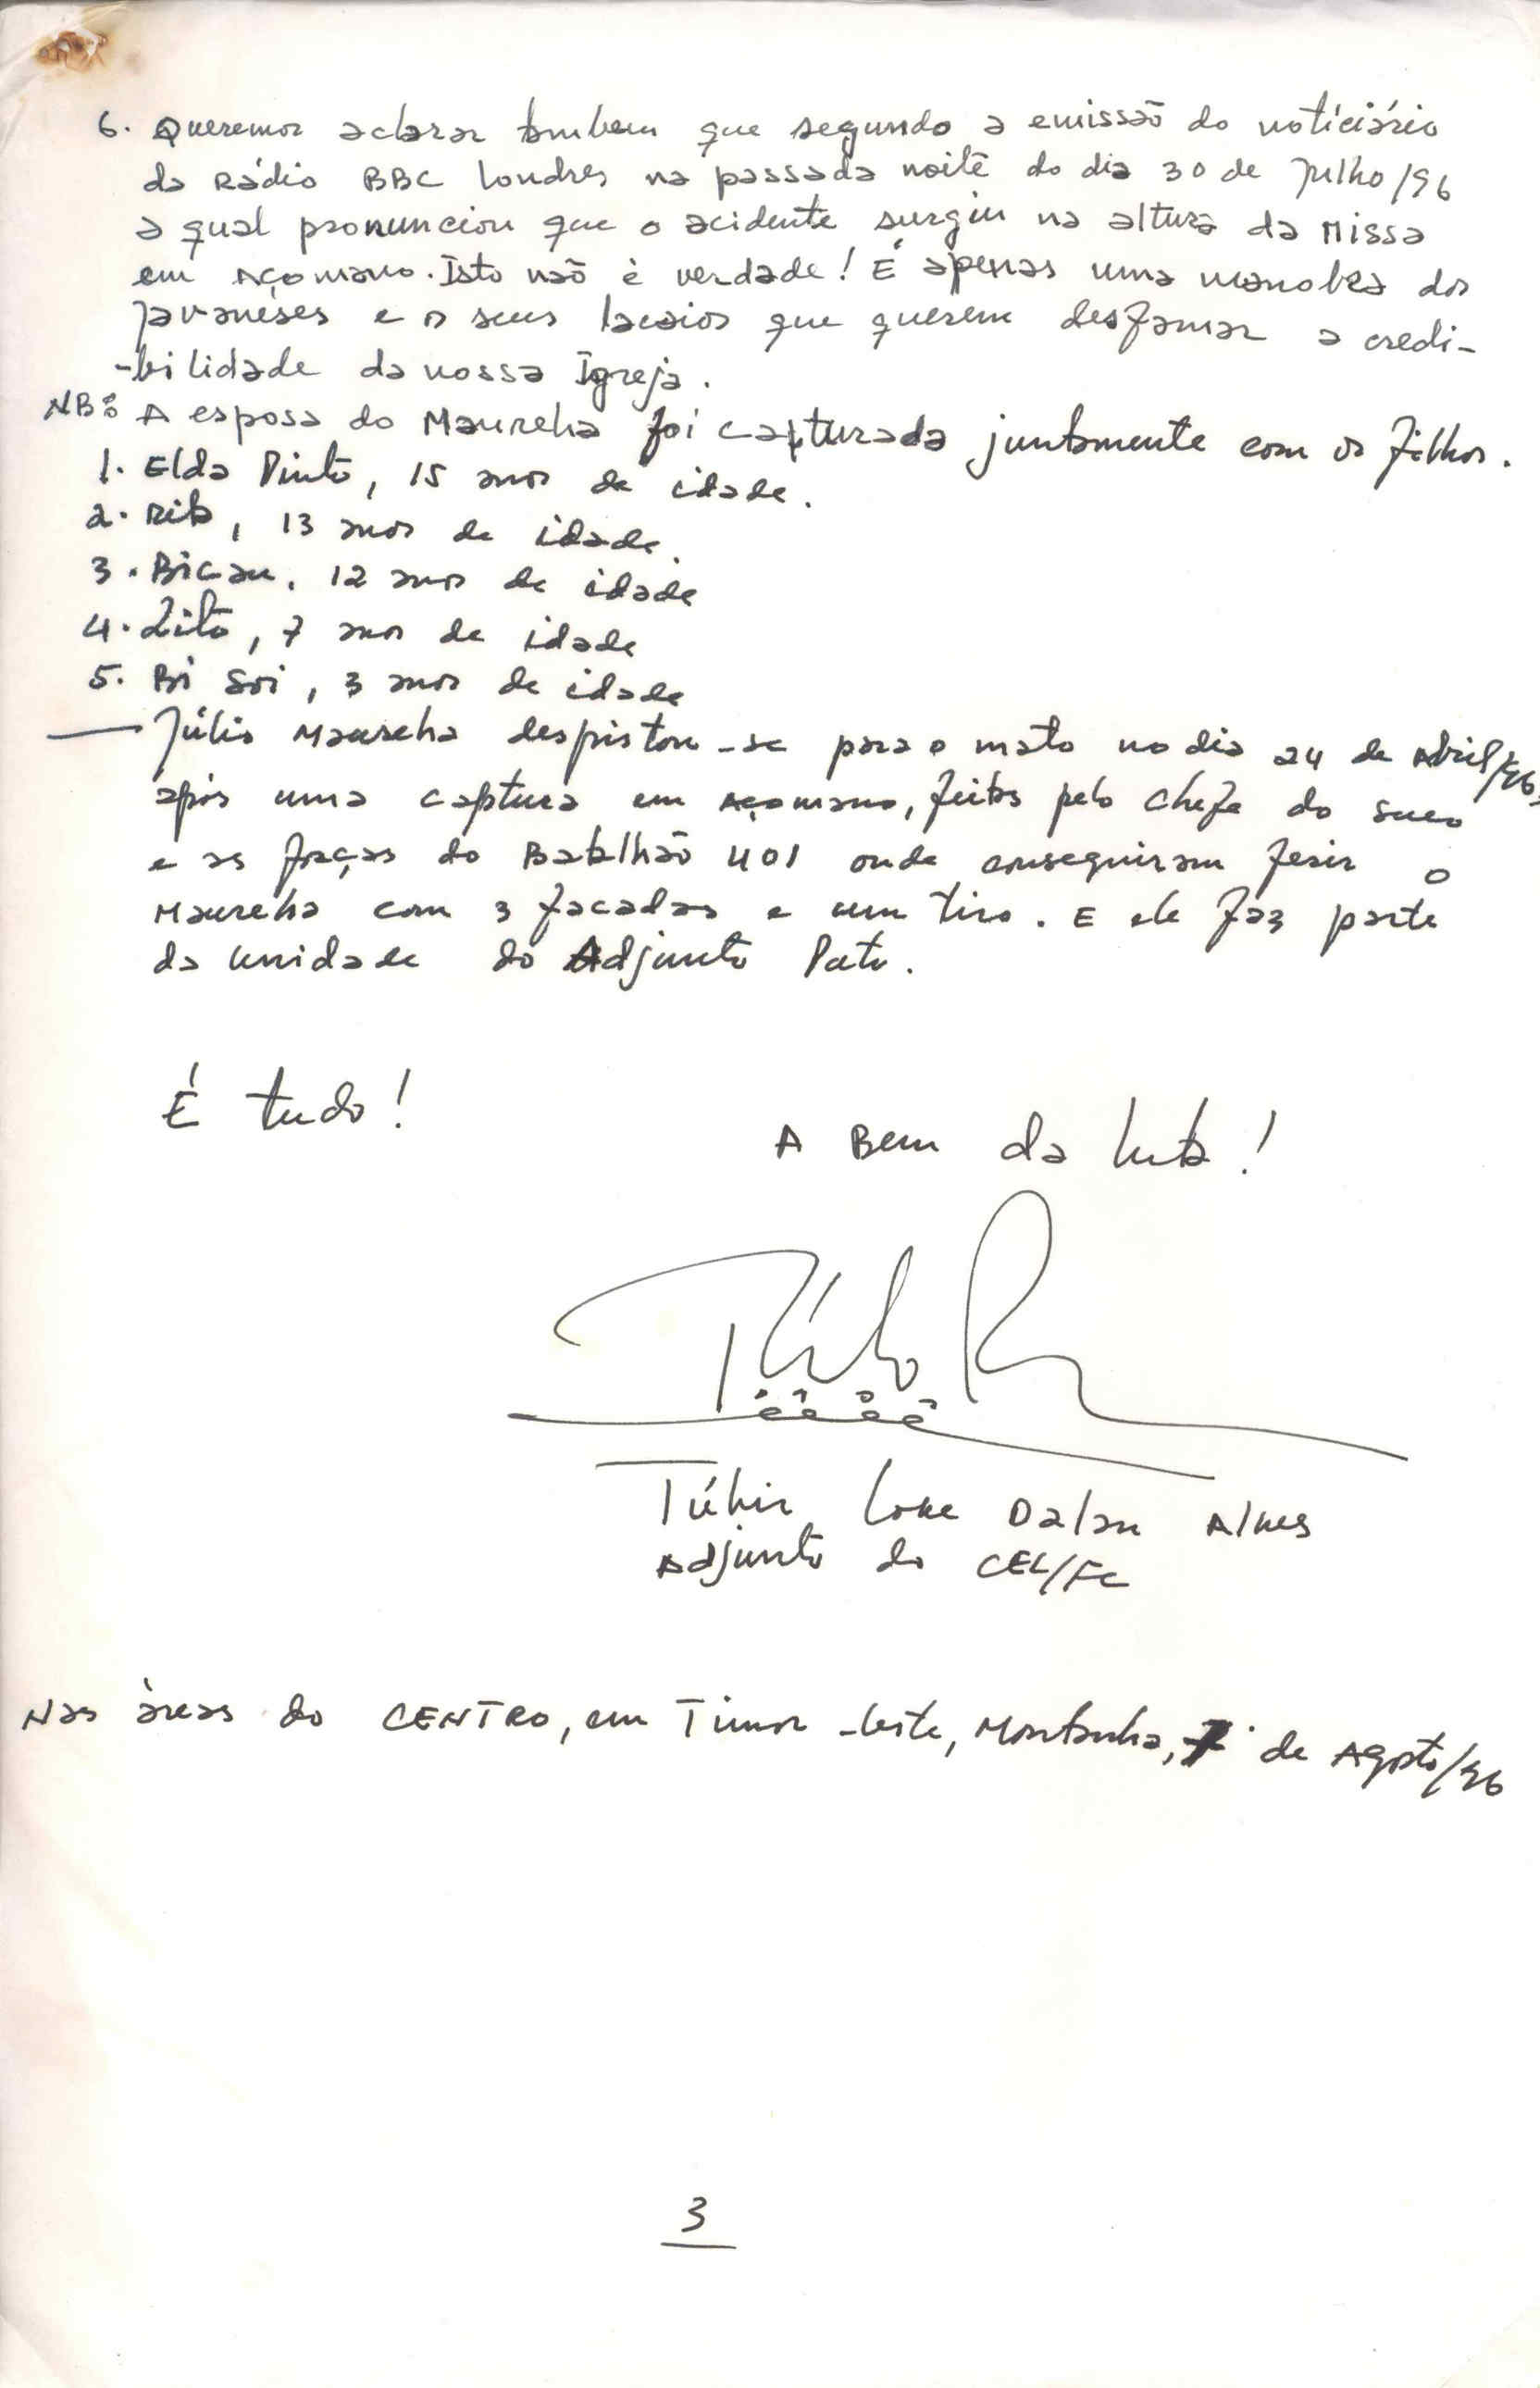 6. Queremos aclarar tambem que segundo a emissão do noticiário
da Rádio BBC Londres na passada noite do dia 30 de Julho/96
a qual pronunciou que o acidente surgiu na altura da Missa
em Açomano. Isto não é verdade! É apenas uma manobra dos
javanêses e os seus lacaios que querem desfamar a credi-
-bilidade da nossa Igreja.
NB: A esposa do Maureha foi capturada juntamente com os filhos.
1. Elda Pinto, 15 anos de idade.
2. Rita, 13 anos de idade.
3. Bicau, 12 anos de idade
4. Zito, 7 anos de idade
5. Bi Soi, 3 anos de idade
— Júlio Maureha despistou-se para o mato no dia 24 de Abril/96,
após uma captura em Açomano, feitas pelo chefe do suco
e as forças do Batalhão 401 onde conseguiram ferir o
Maureha com 3 facadas e um tiro. E ele faz parte
da unidade do Adjunto Patu.
É tudo!
A Bem da luta!
Dalan Alves
Adjunto do CEL/FC
Nas áreas do CENTRO, em Timor-Leste, Montanha, 7 de Agosto/96
3